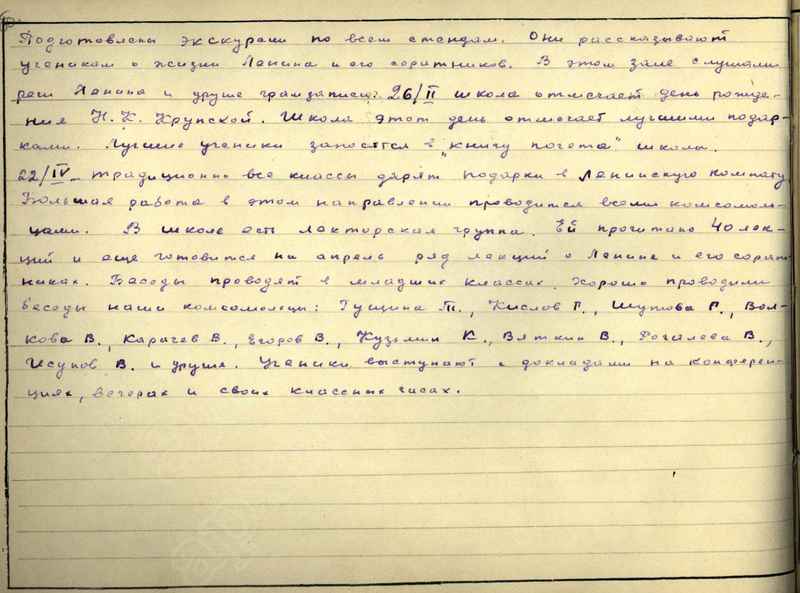 Подготовлены экскурсии по всем стендам. Они рассказывают
ученикам о жизни Ленина и его соратников. В этом зале слушали
речи Ленина и другие грамзаписи. 26/II школа отмечает день рожде-
ния Н. К. Крупской. Школа этот день отмечает лучшими подар-
ками. Лучшие ученики заносятся в „книгу почета" школы.
22/IV – традиционно все классы дарят подарки в Ленинскую комнату.
Большая работа в этом направлении проводится всеми комсомоль-
цами. В школе есть лекторская группа. Ей прочитано 40 лек-
ций и еще готовится на апрель ряд лекций о Ленине и его сорат-
никах. Беседы проводят в младших классах. Хорошо проводили
беседы наши комсомольцы: Гущина Т., Кислов Г., Шутова Г., Вол-
кова В., Карачев В., Егоров В., Кузьмин К., Вяткин В., Рогалева В.,
Исупов В. и другие. Ученики выступают с докладами на конферен-
циях, вечерах и своих классных часах.